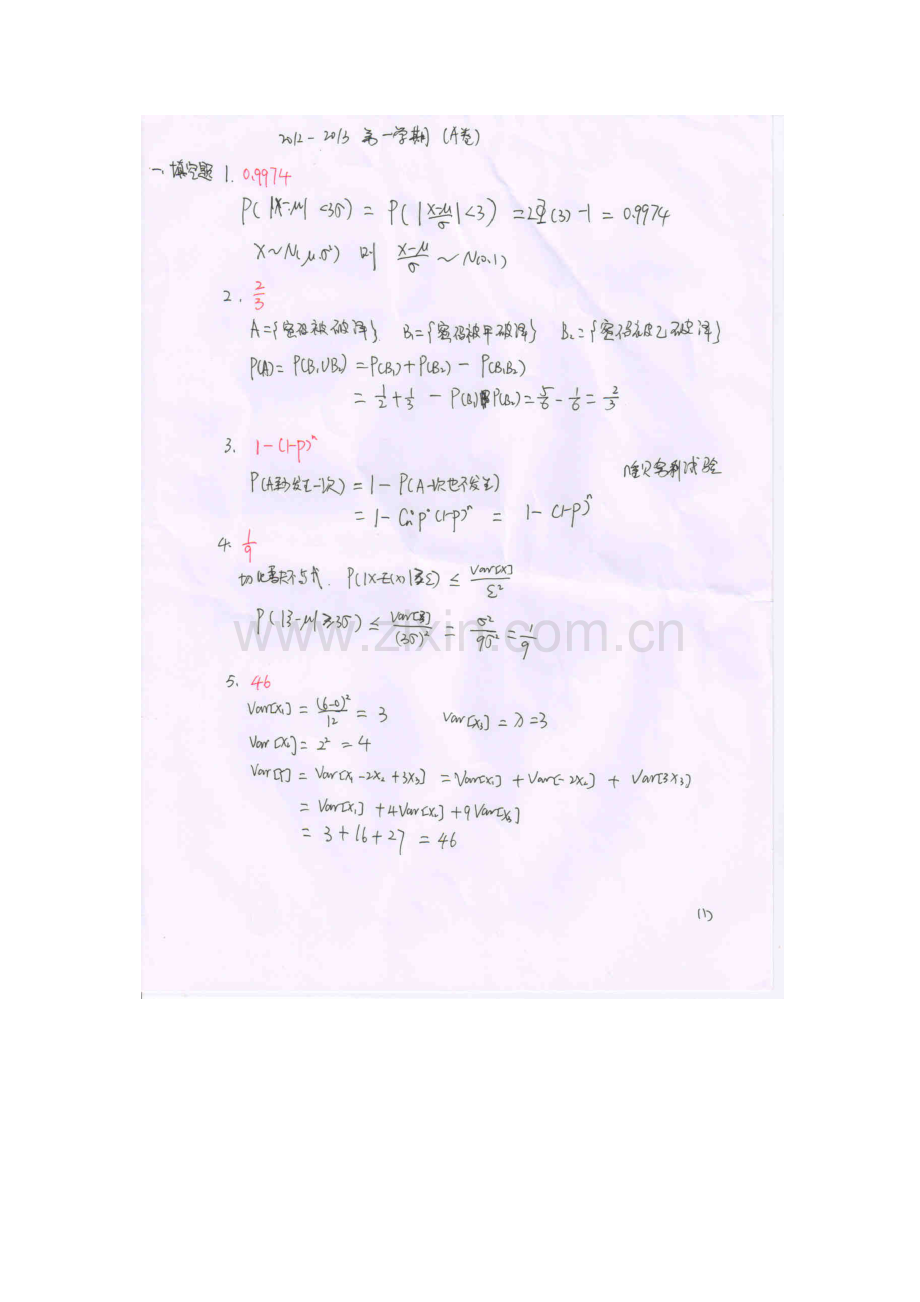 2012-2013 第一学期 (A卷)
一、填空题 1. 0.9974
P(|X-μ|<3σ) = P(|X-μ/σ|<3) = 2Φ(3)-1 = 0.9974
X~N(μ,σ²) 则 X-μ/σ ~N(0,1)
2. 2/3
A={密码被破译} B₁={密码被甲破译} B₂={密码被乙破译}
P(A)= P(B₁∪B₂) = P(B₁)+P(B₂) - P(B₁B₂)
= 1/2 + 1/3 - P(B₁)P(B₂) = 5/6 - 1/6 = 2/3
3. 1-(1-p)ⁿ
P(A至少发生一次) = 1 - P(A一次也不发生) n重贝努利试验
= 1 - Cn⁰ p⁰ (1-p)ⁿ = 1 - (1-p)ⁿ
4. 1/9
切比雪夫不等式. P(|X-E(X)|≥ε) ≤ Var[X]/ε²
P(|ξ-μ|≥3σ) ≤ Var[ξ]/(3σ)² = σ²/9σ² = 1/9
www.zixin.com.cn
5. 46
Var[X₁] = (6-0)²/12 = 3 Var[X₃] = λ = 3
Var[X₂] = 2² = 4
Var[Y] = Var[X₁-2X₂+3X₃] = Var[X₁] + Var[-2X₂] + Var[3X₃]
= Var[X₁] + 4Var[X₂] + 9Var[X₃]
= 3+16+27 = 46
(1)